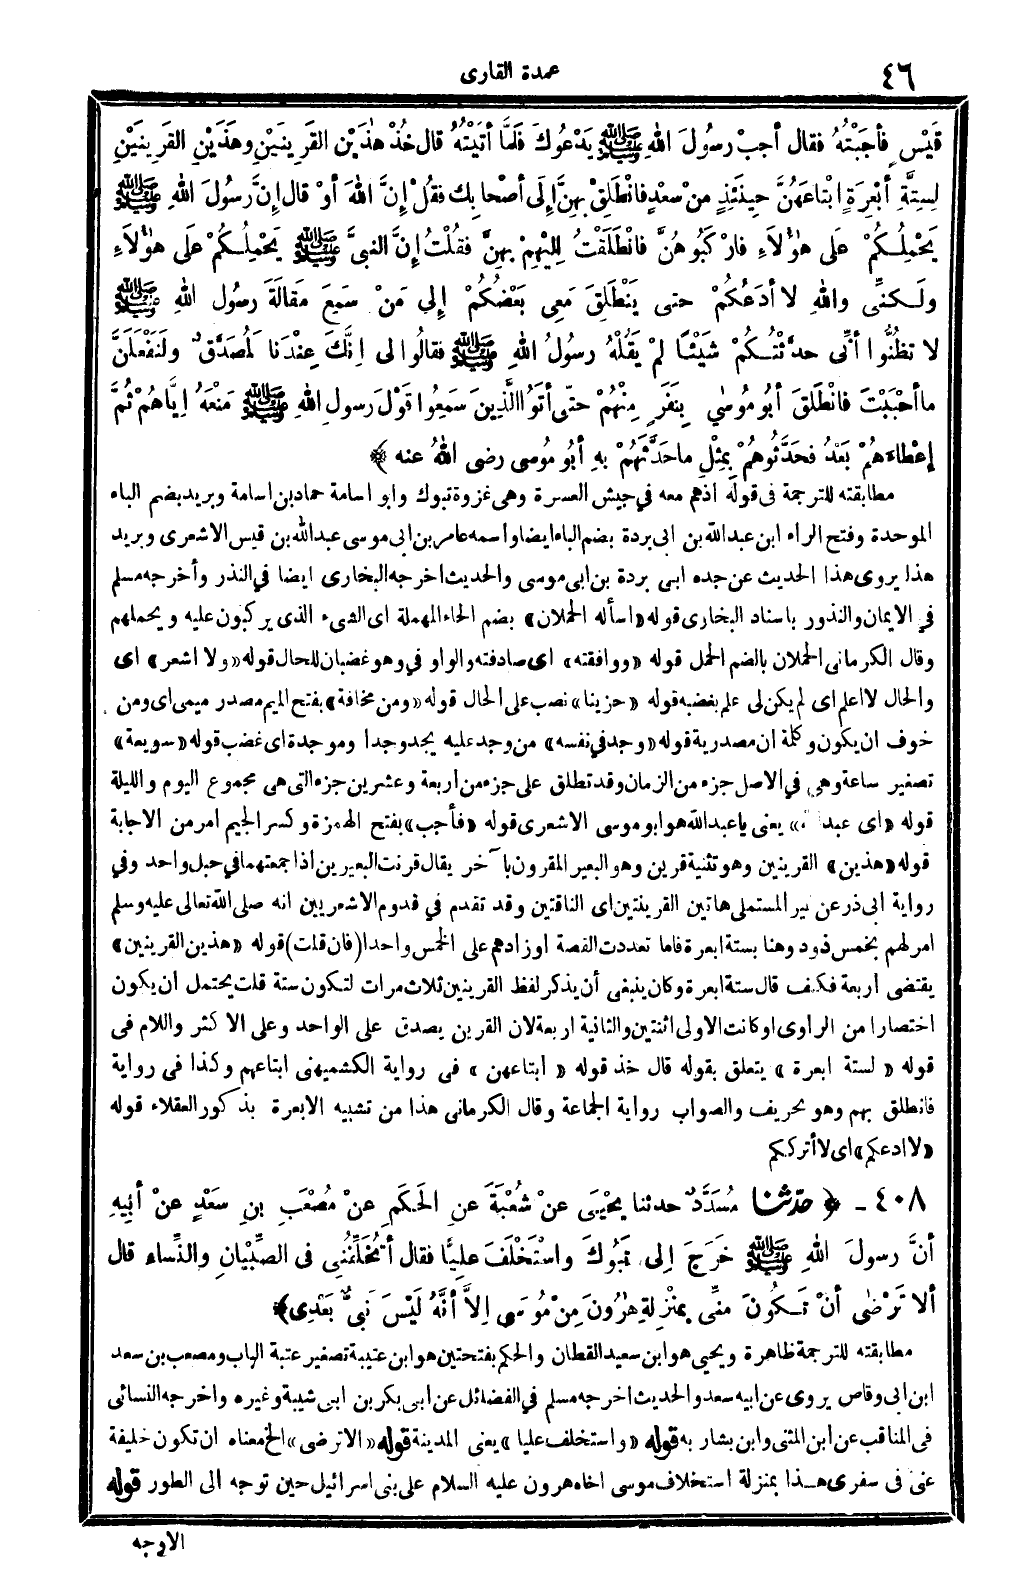 ٤٦
عمدة القارى
قَيْسٍ فأجَبْتُهُ فقال أجبْ رسُولَ اللهِ ﷺ يَدْعُوكَ فَلَمَّا أتَيْتُهُ قال خُذْ هٰذَيْنِ القَرِينَيْنِ وهَذَيْنِ القَرِينَيْنِ
لِسِتَّةِ أبْعِرَةٍ ابْتَاعَهُنَّ حِينَئِذٍ مِنْ سَعْدٍ فانْطَلِقْ بِهِنَّ إِلَى أصْحَابِكَ فقُلْ إنَّ اللهَ أوْ قال إنَّ رسُولَ اللهِ ﷺ
يَحْمِلُكُمْ عَلَى هَؤُلَاءِ فارْكَبُوهُنَّ فانْطَلَقْتُ إلَيْهِمْ بِهِنَّ فقُلْتُ إنَّ النبيَّ ﷺ يَحْمِلُكُمْ عَلَى هَؤُلَاءِ
ولَكِنِّى واللهِ لا أدَعُكُمْ حتى يَنْطَلِقَ مَعِى بَعْضُكُمْ إلى مَنْ سَمِعَ مَقَالَةَ رسُولِ اللهِ ﷺ
لا تظُنُّوا أنِّى حدَّثْتُكُمْ شَيْئًا لمْ يَقُلْهُ رسُولُ اللهِ ﷺ فقالُوا لى إنَّكَ عِنْدَنَا لَمُصَدَّقٌ ولَنَفْعَلَنَّ
ما أحْبَبْتَ فانْطَلَقَ أبُو مُوسٰي بِنَفَرٍ مِنْهُمْ حتّى أتَوُا الَّذِينَ سَمِعُوا قَوْلَ رسولِ اللهِ ﷺ مَنْعَهُ إيَّاهُمْ ثُمَّ
إعْطَاءَهُمْ بَعْدُ فحَدَّثُوهُمْ بِمِثْلِ ما حَدَّثَهُمْ بهِ أبُو مُوسى رضى اللهُ عنه ﴾
مطابقته للترجمة فى قوله اذهم معه في جيش العسرة وهى غزوة تبوك وابو اسامة حماد بن اسامة وبريد بضم الباء
الموحدة وفتح الراء ابن عبدالله بن ابى بردة بضم الباء ايضا واسمه عامر بن ابى موسى عبدالله بن قيس الاشعرى وبريد
هذا يروى هذا الحديث عن جده ابى بردة بن ابى موسى والحديث اخرجه البخارى ايضا في النذر وأخرجه مسلم
في الايمان والنذور باسناد البخارى قوله «اسأله الحملان» بضم الحاء المهملة اى الشىء الذى يركبون عليه ويحملهم
وقال الكرمانى الحملان بالضم الحمل قوله «ووافقته» اى صادفته والواو في وهو غضبان للحال قوله «ولا اشعر» اى
والحال لا اعلم اى لم يكن لى علم بغضبه قوله «حزينا» نصب على الحال قوله «ومن مخافة» بفتح الميم مصدر ميمى اى ومن
خوف ان يكون وكلمة ان مصدرية قوله «وجد في نفسه» من وجد عليه يجد وجدا وموجدة اى غضب قوله «سويعة»
تصغير ساعة وهى في الاصل جزء من الزمان وقد تطلق على جزء من اربعة وعشرين جزء التى هى مجموع اليوم والليلة
قوله «اى عبدالله» يعنى يا عبدالله هو ابو موسى الاشعرى قوله «فأجب» بفتح الهمزة وكسر الجيم امر من الاجابة
قوله «هذين» القرينين وهو تثنية قرين وهو البعير المقرون بآخر يقال قرنت البعيرين اذا جمعتهما في حبل واحد وفي
رواية ابى ذر عن غير المستملى هاتين القرينتين اى الناقتين وقد تقدم في قدوم الاشعريين انه صلى الله تعالى عليه وسلم
امر لهم بخمس ذود وهنا بستة ابعرة فاما تعددت القصة او زادهم على الخمس واحدا (فان قلت) قوله «هذين القرينين»
يقتضى اربعة فكيف قال ستة ابعرة وكان ينبغى أن يذكر لفظ القرينين ثلاث مرات لتكون ستة قلت يحتمل ان يكون
اختصارا من الراوى او كانت الاولى اثنتين والثانية اربعة لان القرين يصدق على الواحد وعلى الاكثر واللام فى
قوله «لستة ابعرة» يتعلق بقوله قال خذ قوله «ابتاعهن» فى رواية الكشميهنى ابتاعهم وكذا فى رواية
فانطلق بهم وهو تحريف والصواب رواية الجماعة وقال الكرمانى هذا من تشبيه الابعرة بذكور العقلاء قوله
«لا ادعكم» اى لا أترككم
٤٠٨ ـ ﴿ حدّثنا مُسَدَّدٌ حدثنا يَحْيَى عنْ شُعْبَةَ عنِ الحَكَمِ عنْ مُصْعَبِ بنِ سَعْدٍ عنْ أبِيهِ
أنَّ رسولَ اللهِ ﷺ خَرَجَ إلى تَبُوكَ واسْتَخْلَفَ عليًّا فقال أتُخَلِّفُنِى فى الصِّبْيَانِ والنِّساءِ قال
ألا تَرْضٰى أنْ تَكُونَ مِنِّى بمَنْزِلَةِ هٰرُونَ مِنْ مُوسَى إلاَّ أنَّهُ لَيْسَ نَبِىٌّ بَعْدِى﴾
مطابقته للترجمة ظاهرة ويحيى هو ابن سعيد القطان والحكم بفتحتين هو ابن عتيبة تصغير عتبة الباب ومصعب بن سعد
ابن ابى وقاص يروى عن ابيه سعد والحديث اخرجه مسلم في الفضائل عن ابى بكر بن ابى شيبة وغيره واخرجه النسائى
فى المناقب عن ابن المثنى وابن بشار به قوله «واستخلف عليا» يعنى المدينة قوله «الا ترضى» الخ معناه ان تكون خليفة
عنى فى سفرى هذا بمنزلة استخلاف موسى اخاه هرون عليه السلام على بنى اسرائيل حين توجه الى الطور قوله
الا وجه